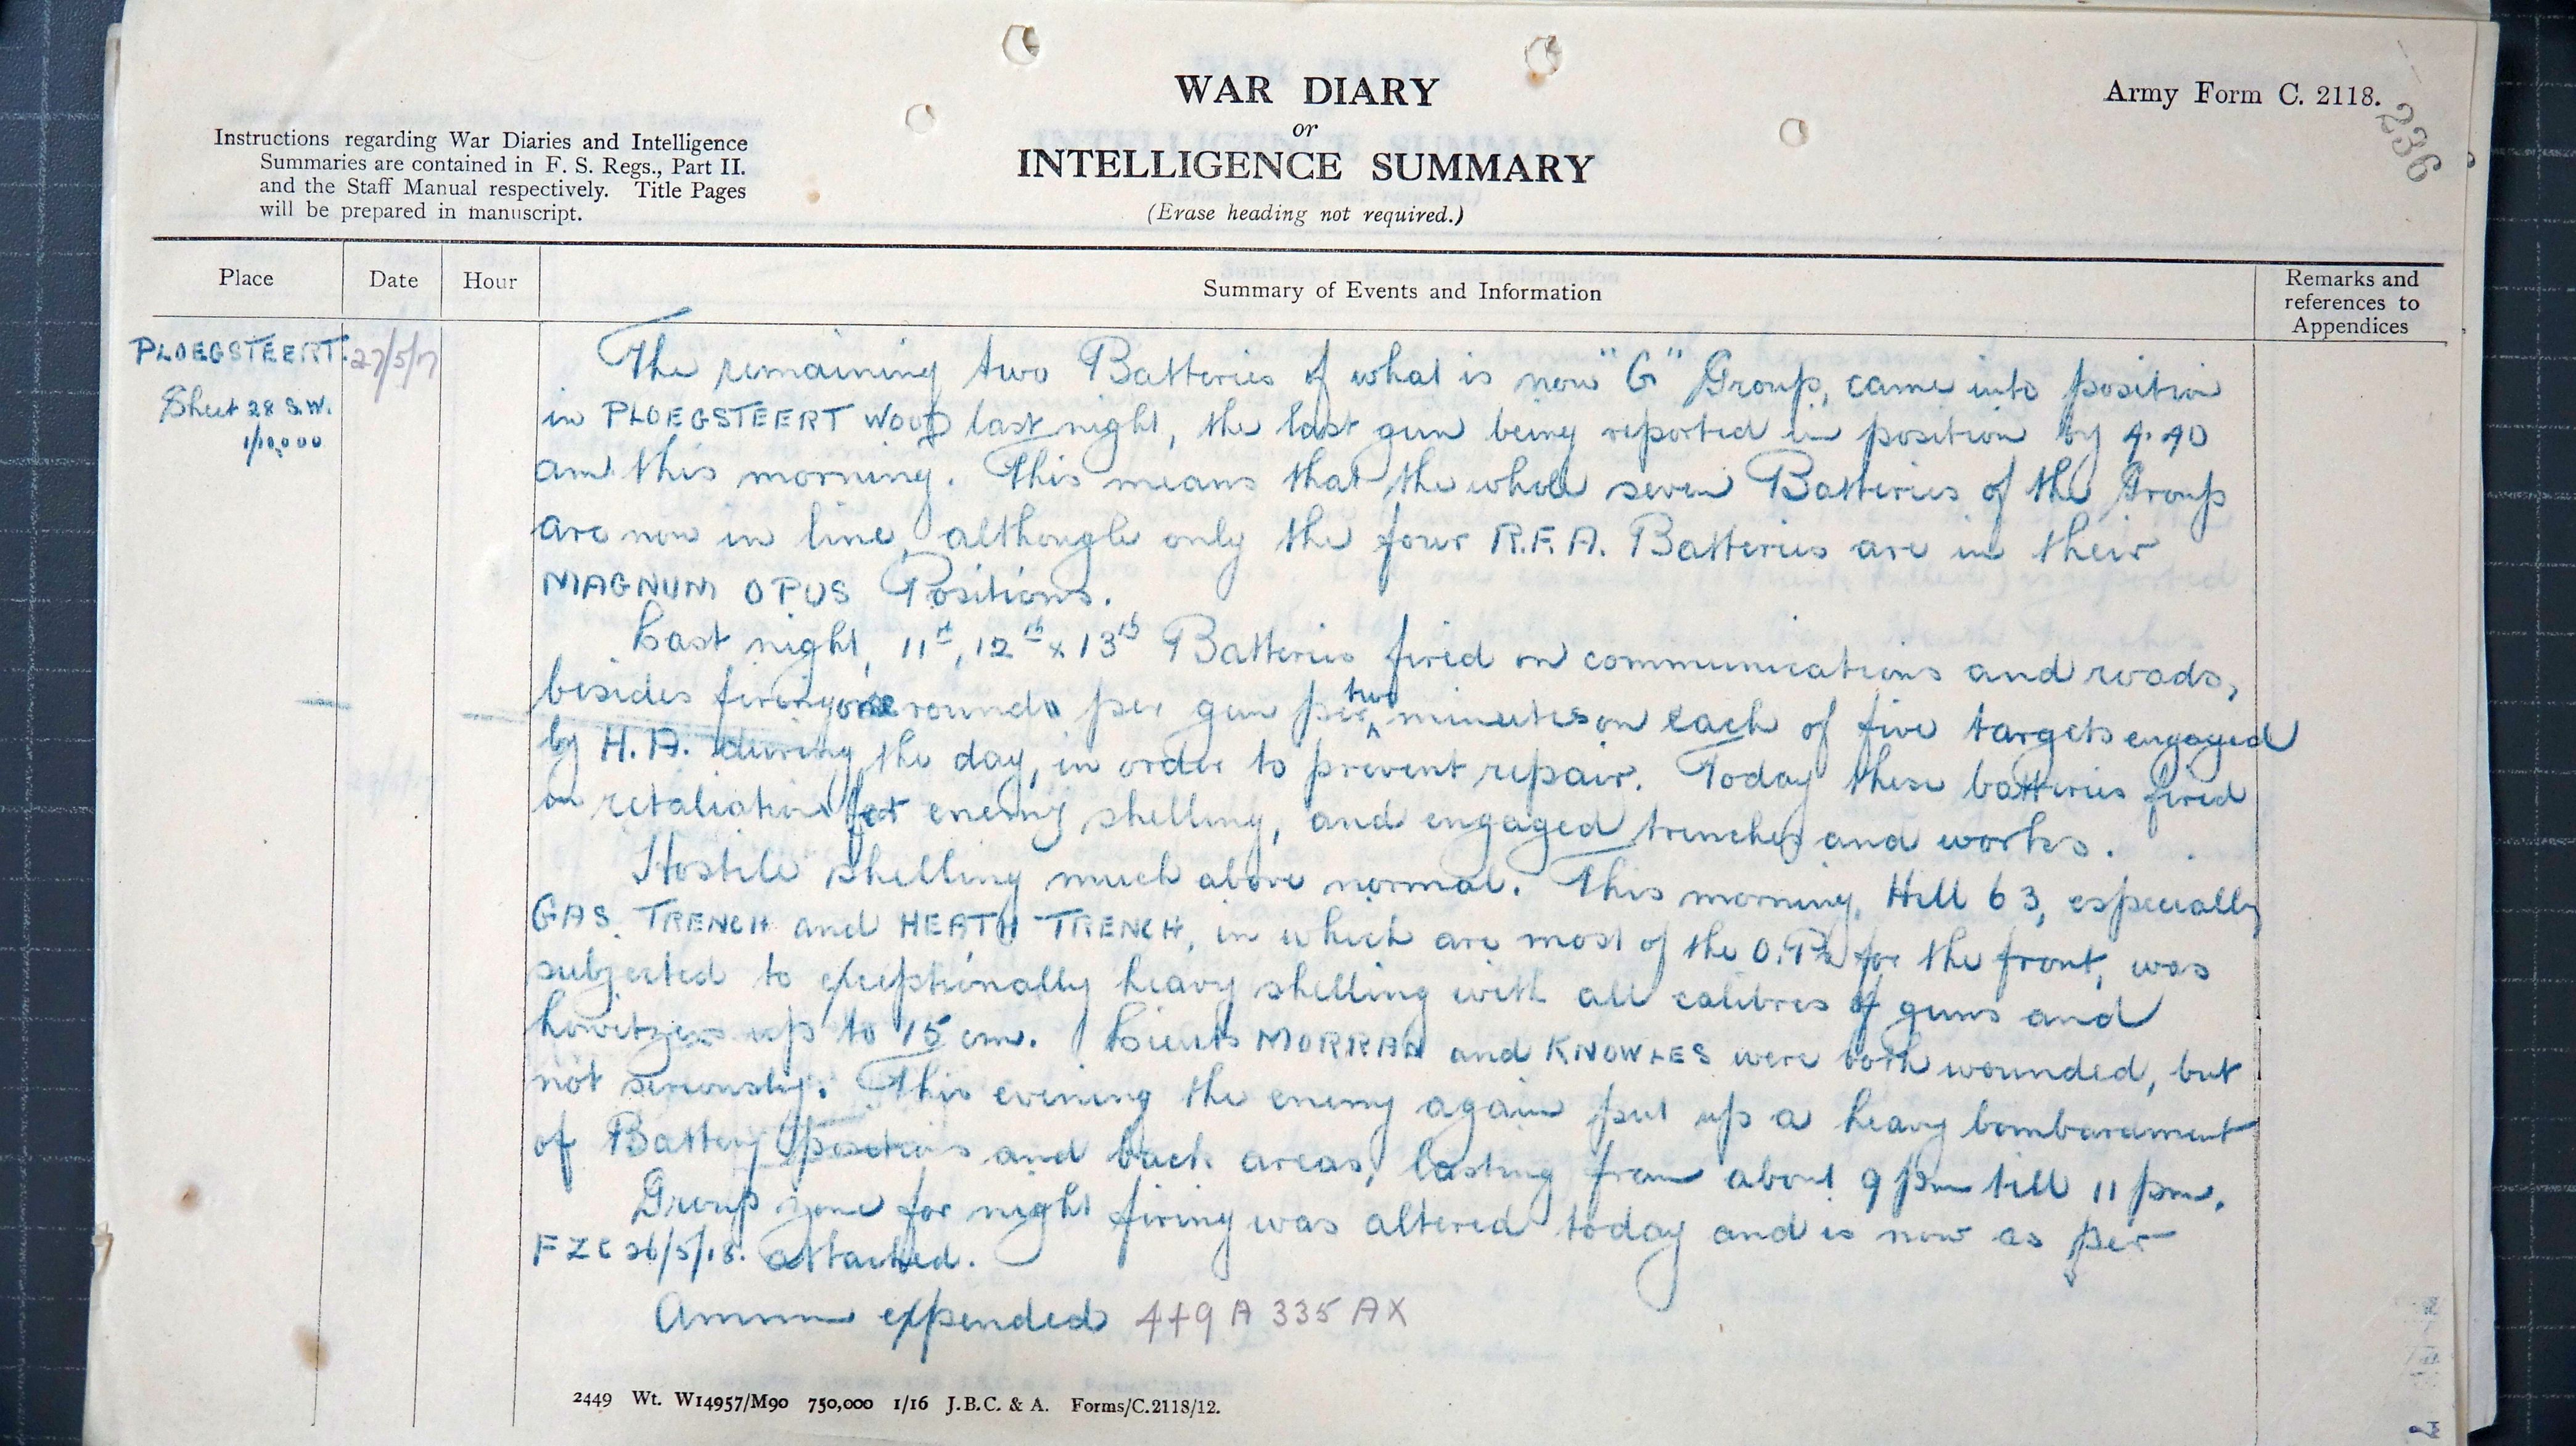 WAR DIARY
or
INTELLIGENCE SUMMARY
(Erase heading not required.)
Army Form C. 2118.
236
Instructions regarding War Diaries and Intelligence
Summaries are contained in F. S. Regs., Part II.
and the Staff Manual respectively. Title Pages
will be prepared in manuscript.
Place
Date
Hour
Summary of Events and Information
Remarks and
references to
Appendices
PLOEGSTEERT.
Sheet 28 S.W.
1/10,000
27/5/17
The remaining two Batteries of what is now "G" Group, came into position
in PLOEGSTEERT WOOD last night, the last gun being reported in position by 4.40
am this morning. This means that the whole seven Batteries of the Group
are now in line, although only the four R.F.A. Batteries are in their
MAGNUM OPUS Positions.
Last night, 11th, 12th x 13th Batteries fired on communications and roads,
besides firing one rounds per gun per two minutes on each of five targets engaged
by H.A. during the day, in order to prevent repair. Today these batteries fired
on retaliation for enemy shelling, and engaged trenches and works.
Hostile shelling much above normal. This morning, Hill 63, especially
GAS TRENCH and HEATH TRENCH, in which are most of the O.Ps for the front, was
subjected to exceptionally heavy shelling with all calibres of guns and
howitzers up to 15 cm. Lieuts MORRAN and KNOWLES were both wounded, but
not seriously. This evening the enemy again put up a heavy bombardment
of Battery positions and back areas, lasting from about 9 pm till 11 pm.
Group zone for night firing was altered today and is now as per
FZC 26/5/18. attached.
Ammn expended 449 A 335 AX
2449 Wt. W14957/M90 750,000 1/16 J.B.C. & A. Forms/C.2118/12.